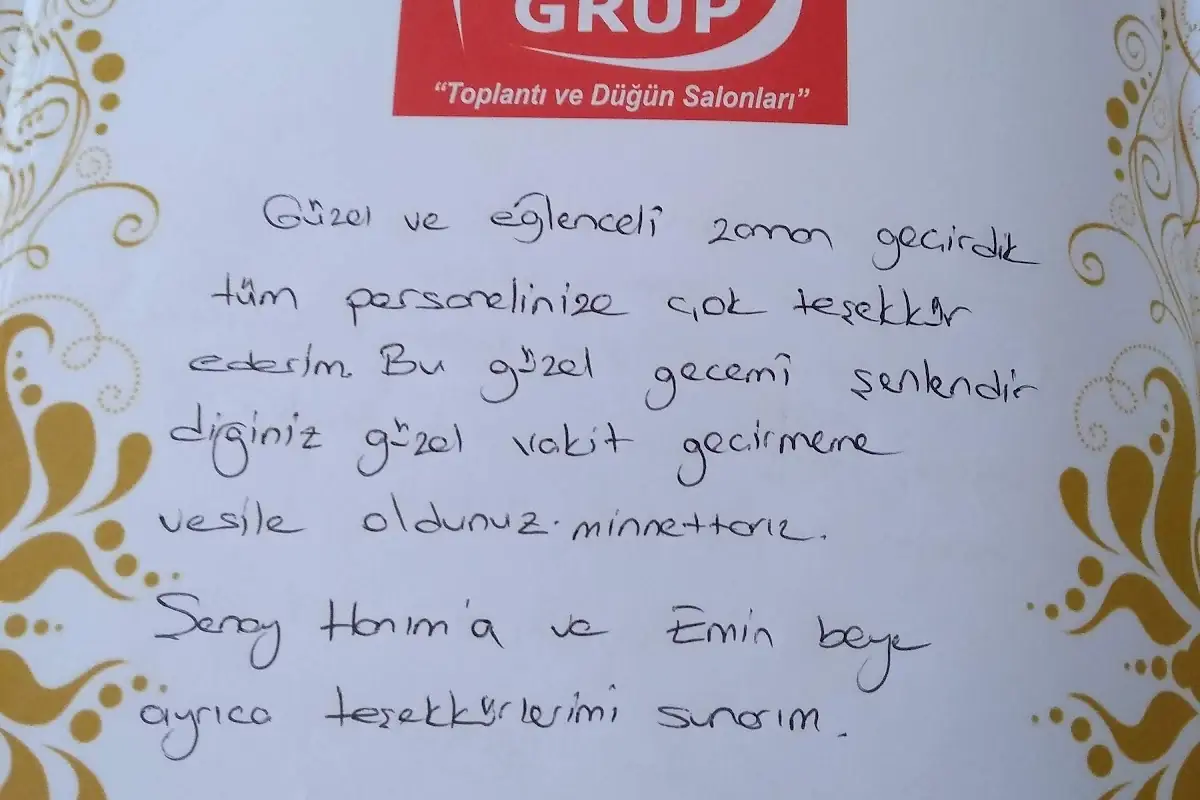 GRUP
"Toplantı ve Düğün Salonları"
Güzel ve eğlenceli zaman geçirdik
tüm personelinize çok teşekkür
ederim. Bu güzel gecemi şenlendir
diğiniz güzel vakit geçirmeme
vesile oldunuz. minnettarız.
Şenay Hanım'a ve Emin beye
ayrıca teşekkürlerimi sunarım.